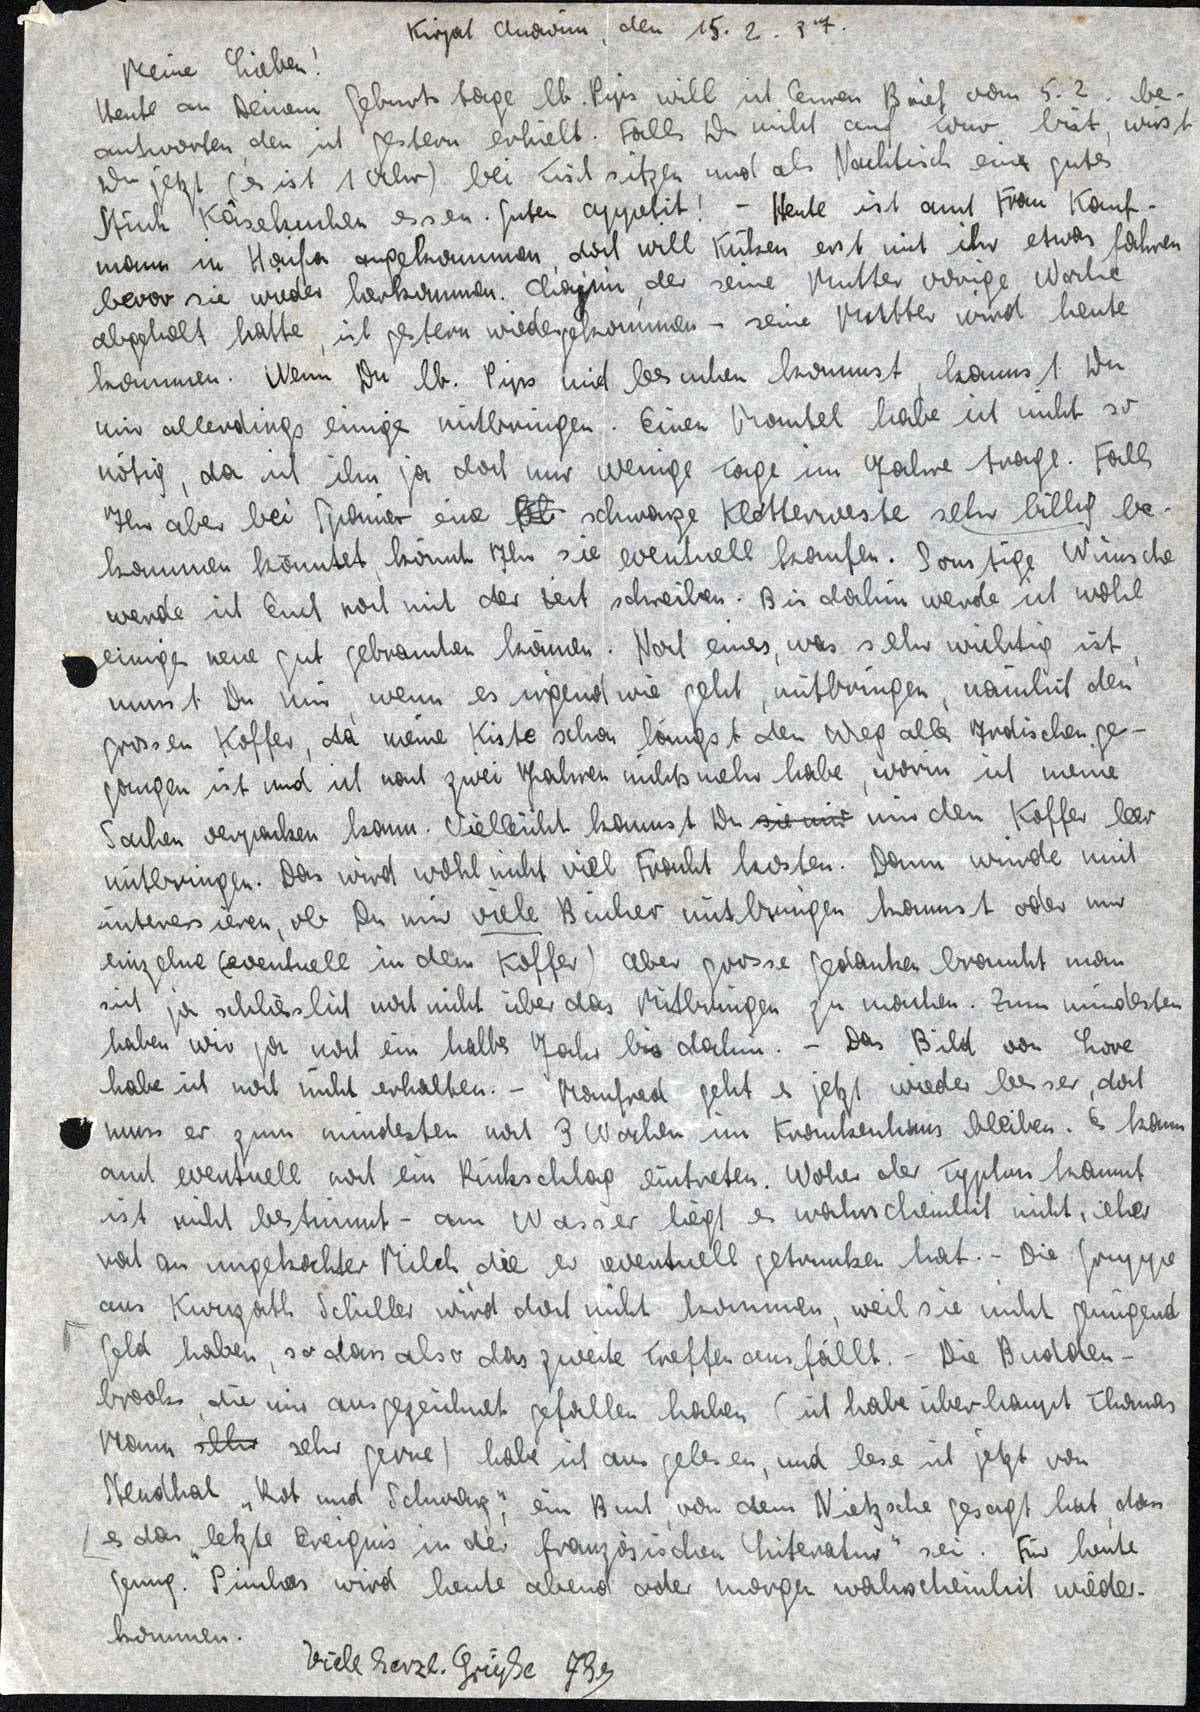 Kirjat Anavim, den 15. 2. 37.
Meine Lieben!
Heute an Deinem Geburtstage lb. Pips will ich Euren Brief vom 5.2. be-
antworten, den ich gestern erhielt. Falls Du nicht auf Tour bist, wirst
Du jetzt (es ist 1 Uhr) bei Tisch sitzen und als Nachtisch ein gutes
Stück Käsekuchen essen. Guten Appetit! – Heute ist auch Frau Kauf-
mann in Haifa angekommen, doch will Küken erst mit ihr etwas fahren
bevor sie wieder herkommen. Chajim, der seine Mutter vorige Woche
abgeholt hatte, ist gestern wiedergekommen – seine Mutter wird heute
kommen. Wenn Du lb. Pips mich besuchen kommst, kannst Du
mir allerdings einige mitbringen. Einen Mantel habe ich nicht so
nötig, da ich ihn ja doch nur wenige Tage im Jahre trage. Falls
Ihr aber bei Spanier eine schwarze Kletterweste sehr billig be-
kommen könntet, könnt Ihr sie eventuell kaufen. Sonstige Wünsche
werde ich Euch noch mit der Zeit schreiben. Bis dahin werde ich wohl
einige neue gut gebrauchen können. Noch eines, was sehr wichtig ist,
musst Du mir, wenn es irgendwie geht, mitbringen, nämlich den
grossen Koffer, da meine Kiste schon längst den Weg alles Irdischen ge-
gangen ist und ich nach zwei Jahren nichts mehr habe, worin ich meine
Sachen verpacken kann. Vielleicht kannst Du sie mir mir den Koffer leer
mitbringen. Das wird wohl nicht viel Fracht kosten. Dann würde mich
interessieren, ob Du mir viele Bücher mitbringen kannst oder nur
einzelne (eventuell in dem Koffer) aber grosse Gedanken braucht man
sich ja schliesslich noch nicht über das Mitbringen zu machen. Zum mindesten
haben wir ja noch ein halbes Jahr bis dahin. – Das Bild von Lore
habe ich noch nicht erhalten. – Manfred geht es jetzt wieder besser, doch
muss er zum mindesten noch 3 Wochen im Krankenhaus bleiben. Es kann
auch eventuell noch ein Rückschlag eintreten. Woher der Typhus kommt
ist nicht bestimmt – am Wasser liegt es wahrscheinlich nicht, eher
noch an ungekochter Milch, die er eventuell getrunken hat. – Die Gruppe
aus Kwuzath Schiller wird doch nicht kommen, weil sie nicht genügend
Geld haben, so dass also das zweite Treffen ausfällt. – Die Budden-
brooks, die mir ausgezeichnet gefallen haben (ich habe überhaupt Thomas
Mann sehr sehr gerne) habe ich ausgelesen, und lese ich jetzt von
Stendhal „Rot und Schwarz“, ein Buch, von dem Nietzsche gesagt hat, dass
es das „letzte Ereignis in der französischen Literatur“ sei. Für heute
genug. Pinchas wird heute abend oder morgen wahrscheinlich wieder-
kommen.
Viele herzl. Grüsse